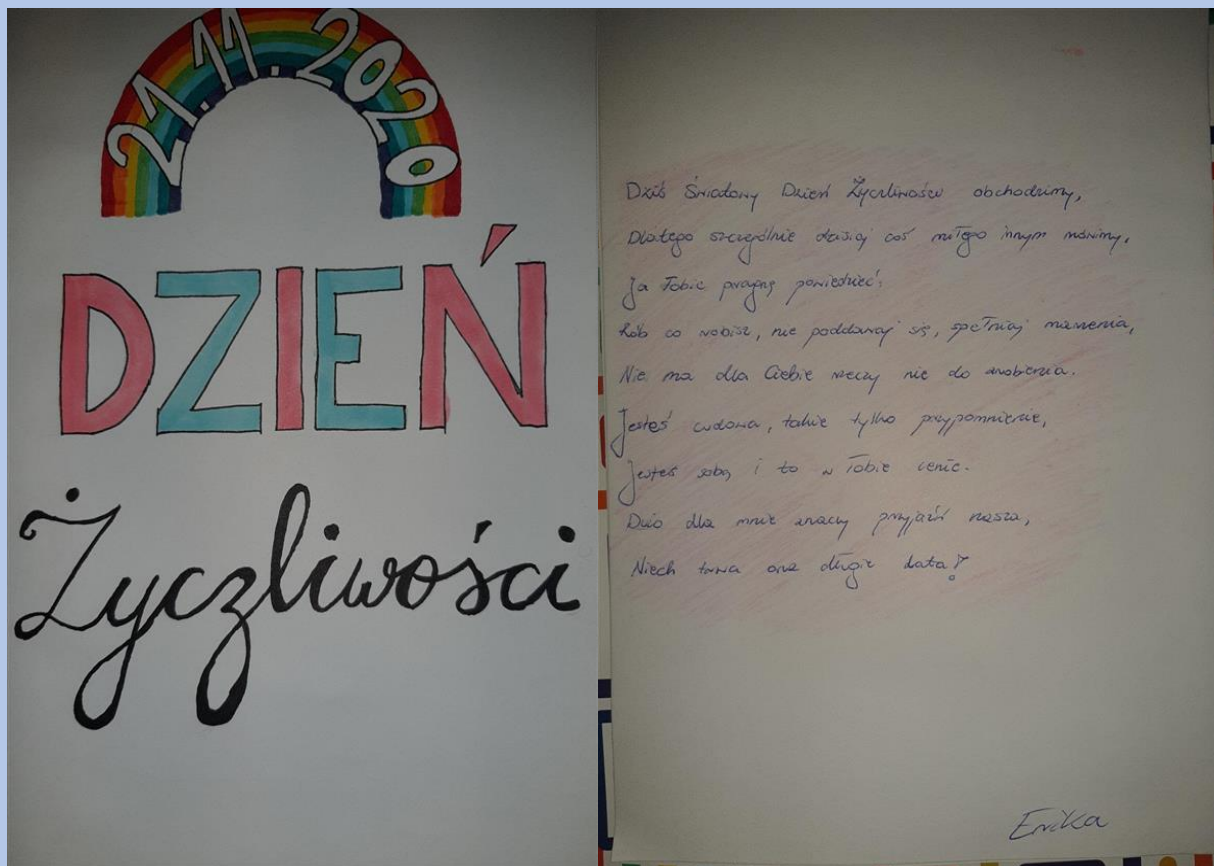 21.11.2020
DZIEŃ
Życzliwości
Dziś Światowy Dzień Życzliwości obchodzimy,
Dlatego szczególnie dzisiaj coś miłego innym mówimy,
Ja Tobie pragnę powiedzieć:
Rób co robisz, nie poddawaj się, spełniaj marzenia,
Nie ma dla Ciebie rzeczy nie do zrobienia.
Jesteś cudowna, takie tylko przypomnienie,
Jesteś sobą i to w Tobie cenię.
Dużo dla mnie znaczy przyjaźń nasza,
Niech trwa ona długie lata!
Erika